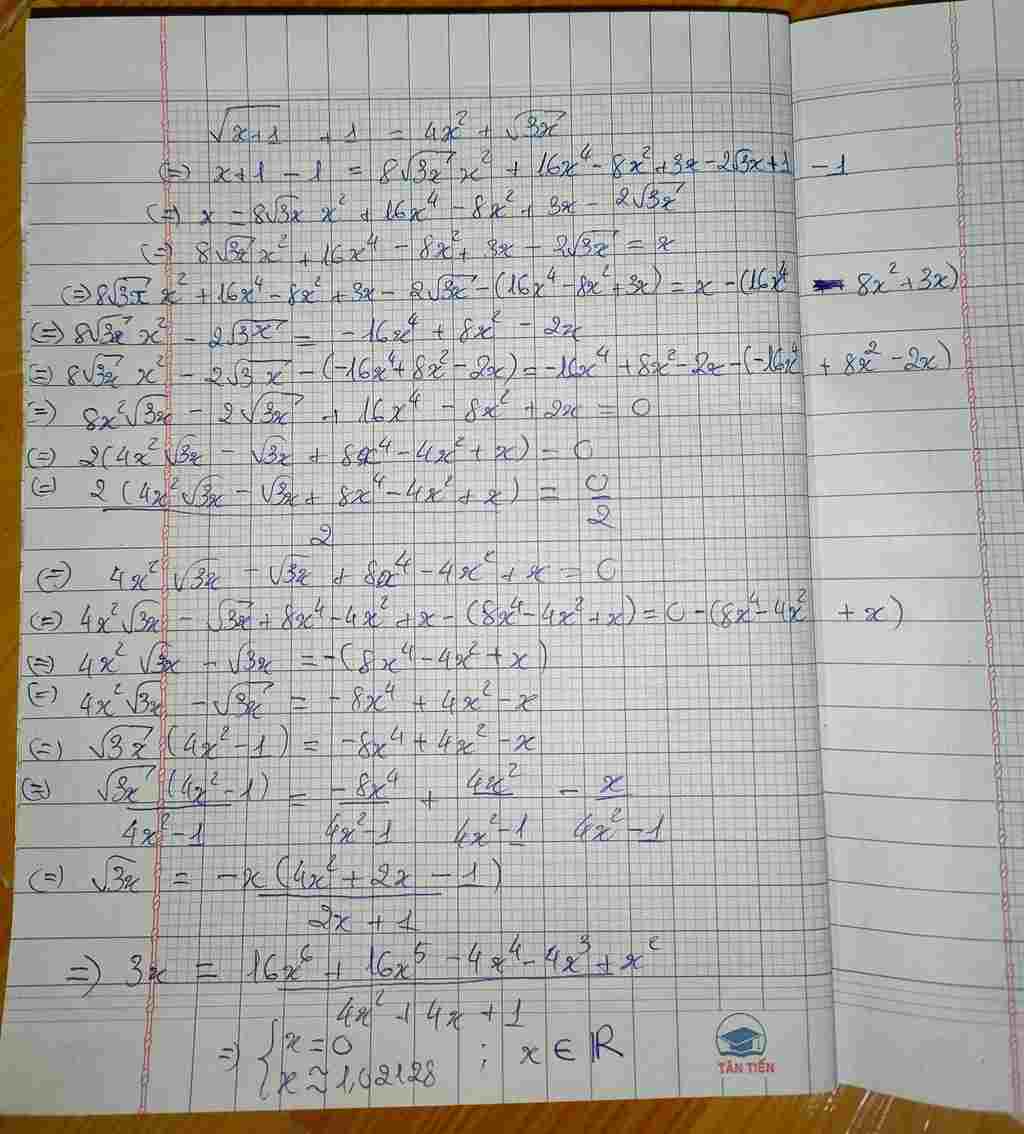 √(x+1) + 1 = 4x² + √(3x)
(=) x+1 - 1 = 8√(3x) x² + 16x⁴ - 8x² + 3x - 2√3x + 1 - 1
(=) x = 8√(3x) x² + 16x⁴ - 8x² + 3x - 2√(3x)
(=) 8√(3x) x² + 16x⁴ - 8x² + 3x - 2√(3x) = x
(=) 8√(3x) x² + 16x⁴ - 8x² + 3x - 2√(3x) - (16x⁴ - 8x² + 3x) = x - (16x⁴ - 8x² + 3x)
(=) 8√(3x) x² - 2√(3x) = -16x⁴ + 8x² - 2x
(=) 8√(3x) x² - 2√(3x) - (-16x⁴ + 8x² - 2x) = -16x⁴ + 8x² - 2x - (-16x⁴ + 8x² - 2x)
(=) 8x²√(3x) - 2√(3x) + 16x⁴ - 8x² + 2x = 0
(=) 2(4x²√(3x) - √(3x) + 8x⁴ - 4x² + x) = 0
(=) 2(4x²√(3x) - √(3x) + 8x⁴ - 4x² + x)/2 = 0/2
(=) 4x²√(3x) - √(3x) + 8x⁴ - 4x² + x = 0
(=) 4x²√(3x) - √(3x) + 8x⁴ - 4x² + x - (8x⁴ - 4x² + x) = 0 - (8x⁴ - 4x² + x)
(=) 4x²√(3x) - √(3x) = -(8x⁴ - 4x² + x)
(=) 4x²√(3x) - √(3x) = -8x⁴ + 4x² - x
(=) √(3x) (4x² - 1) = -8x⁴ + 4x² - x
(=) √(3x) (4x² - 1)/(4x² - 1) = -8x⁴/(4x² - 1) + 4x²/(4x² - 1) - x/(4x² - 1)
(=) √(3x) = -x(4x² + 2x - 1)/(2x + 1)
=) 3x = (16x⁶ + 16x⁵ - 4x⁴ - 4x³ + x²)/(4x² + 4x + 1)
=) { x = 0 ; x ∈ ℝ
x ≈ 1,02128
TÂN TIẾN